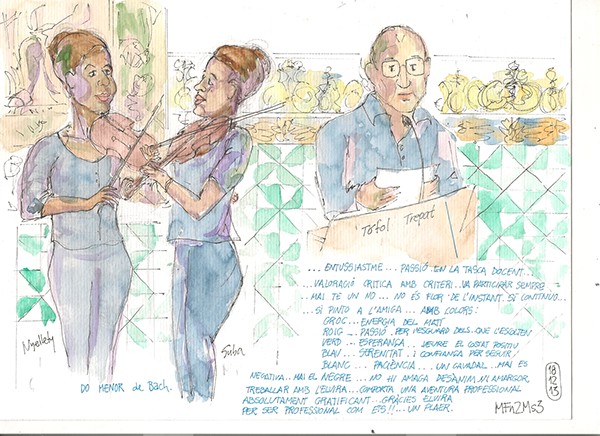 Tòfol Trepat
Nyellely
Suba
DO MENOR de BACH.
... ENTUSSIASTME ... PASSIÓ EN LA TASCA DOCENT...
... VALORACIÓ CRITICA AMB CRITERI.. VA PARTICIPAR SEMPRE
MAI TE UN NO ... NO ÉS FLOR DE L'INSTANT. SÍ CONTINUO...
... SI PINTO A L'AMIGA ... AMB COLORS:
GROC... ENERGIA DEL MATÍ
ROIG ... PASSIÓ, PER L'ESGUARD DELS.. QUE L'ESCOLTEN
VERD ... ESPERANÇA, VEURE EL COSTAT POSITIU
BLAU ... SERENITAT. I CONFIANÇA PER SEGUIR
BLANC ... PACIÈNCIA ... UN CAVADAL.. MAI ES
NEGATIVA.. MAI EL NEGRE ... NO HI AMAGA DESÀNIM, NI AMARGOR,
TREBALLAR AMB L'ELVIRA.. COMPORTA UNA AVENTURA PROFESSIONAL
ABSOLUTAMENT GRATIFICANT... GRÀCIES ELVIRA
PER SER PROFESSIONAL COM ETS!! ... UN PLAER.
18
12
13
MFn2Ms3